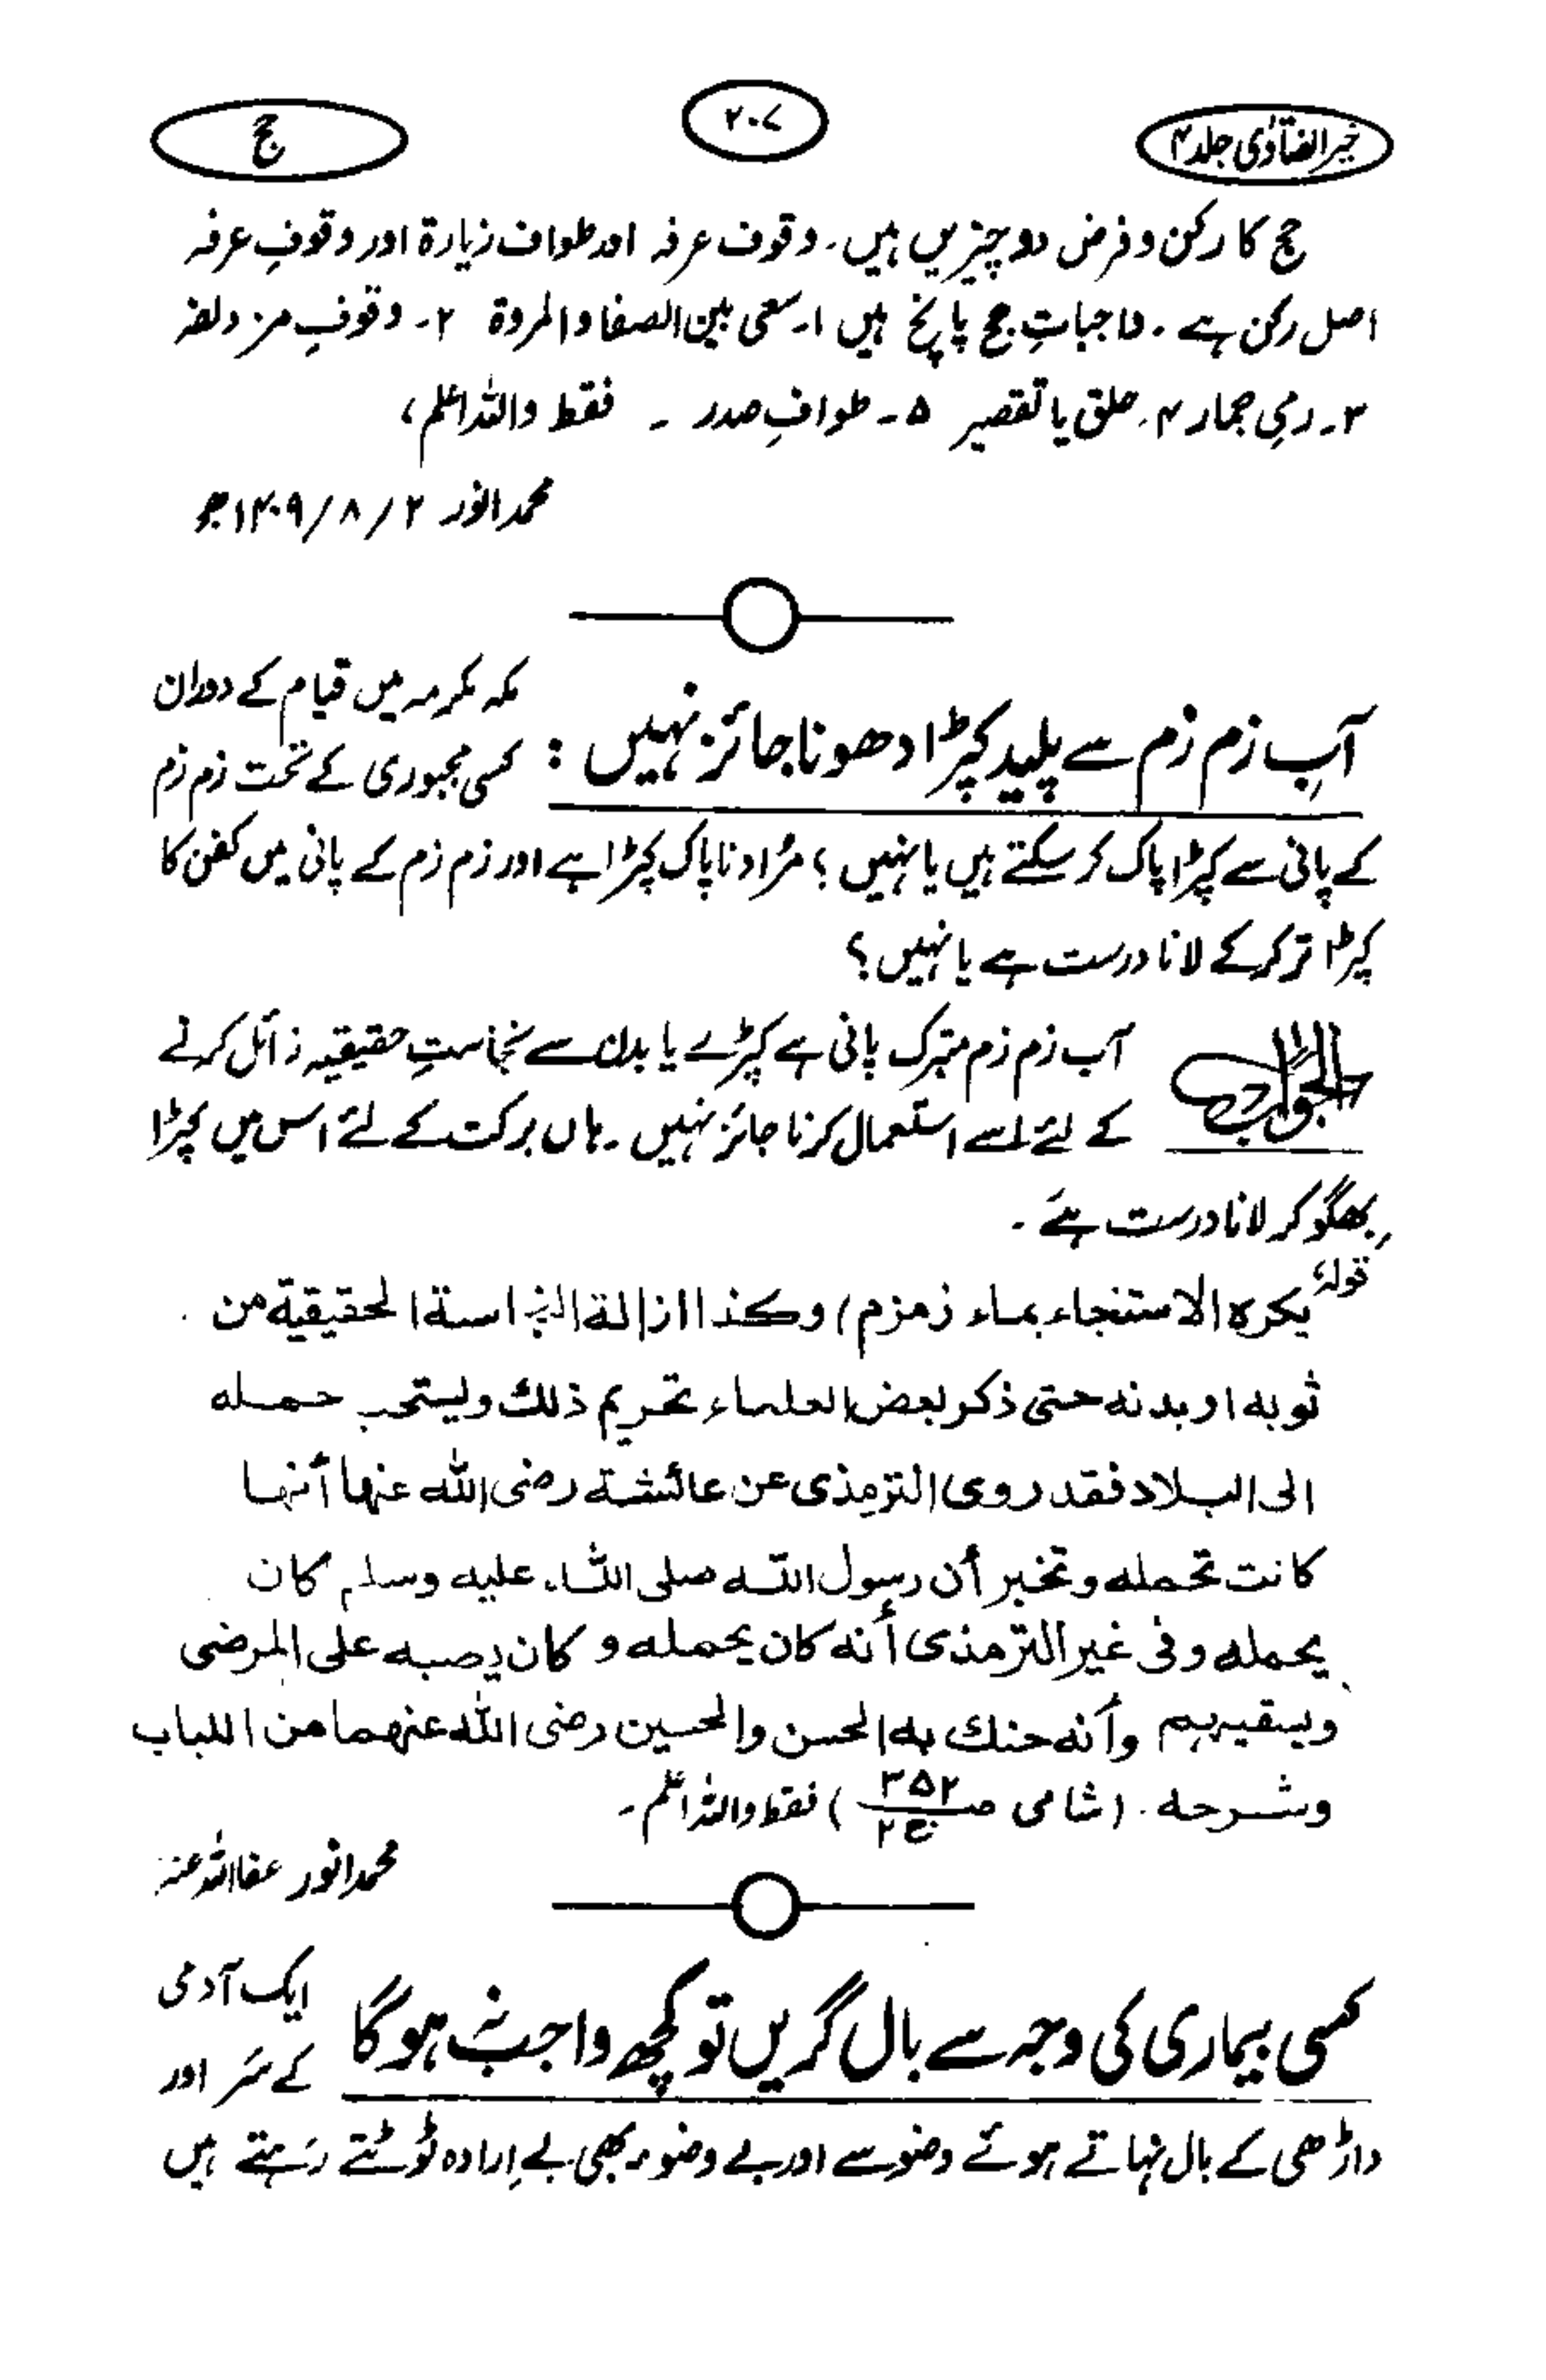 خیر الفتاوٰی جلد ۴
۲۰۷
حج
حج کا رکن و فرض دو چیزیں ہیں۔ وقوف عرفہ اور طواف زیارۃ اور وقوفِ عرفہ
اصل رکن ہے۔ واجباتِ حج پانچ ہیں ۱۔ سعی بین الصفا والمروۃ ۲۔ وقوفِ مزدلفہ
۳۔ رمیِ جمار ۴۔ حلق یا تقصیر ۵۔ طوافِ صدر ۔ فقط واللہ اعلم،
محمد انور ۲ / ۸ / ۱۴۰۹ھ
آبِ زم زم سے پلید کپڑا دھونا جائز نہیں :
مکہ مکرمہ میں قیام کے دوران
کسی مجبوری کے تحت زم زم
کے پانی سے کپڑا پاک کر سکتے ہیں یا نہیں ؟ مراد ناپاک کپڑا ہے اور زم زم کے پانی میں کفن کا
کپڑا تر کر کے لانا درست ہے یا نہیں ؟
الجواب
آب زم زم متبرک پانی ہے کپڑے یا بدن سے نجاستِ حقیقیہ زائل کرنے
کے لئے اسے استعمال کرنا جائز نہیں ۔ ہاں برکت کے لئے اس میں کپڑا
بھگو کر لانا درست ہے ۔
قولہ یکرہ الاستنجاء بماء زمزم) وکذا ازالة النجاسة الحقیقیة من
ثوبه او بدنه حتی ذکر بعض العلماء تحریم ذلك ویستحب حمله
الی البلاد فقد روی الترمذی عن عائشة رضی اللہ عنہا أنہا
کانت تحمله وتخبر أن رسول اللہ صلی اللہ علیه وسلم کان
یحمله وفی غیر الترمذی أنه کان یحمله و کان یصبه علی المرضی
ویسقیہم وأنه حنك به الحسن والحسین رضی اللہ عنهما من اللباب
وشرحه ۔ (شامی صـ ۳۵۲ ج۲) فقط واللہ اعلم ۔
محمد انور عفا اللہ عنہ
کسی بیماری کی وجہ سے بال گریں تو کچھ واجب نہ ہو گا
ایک آدمی
کے سَر اور
داڑھی کے بال نہاتے ہوئے وضو سے اور بے وضو بھی بے اِرادہ ٹوٹتے رَہتے ہیں